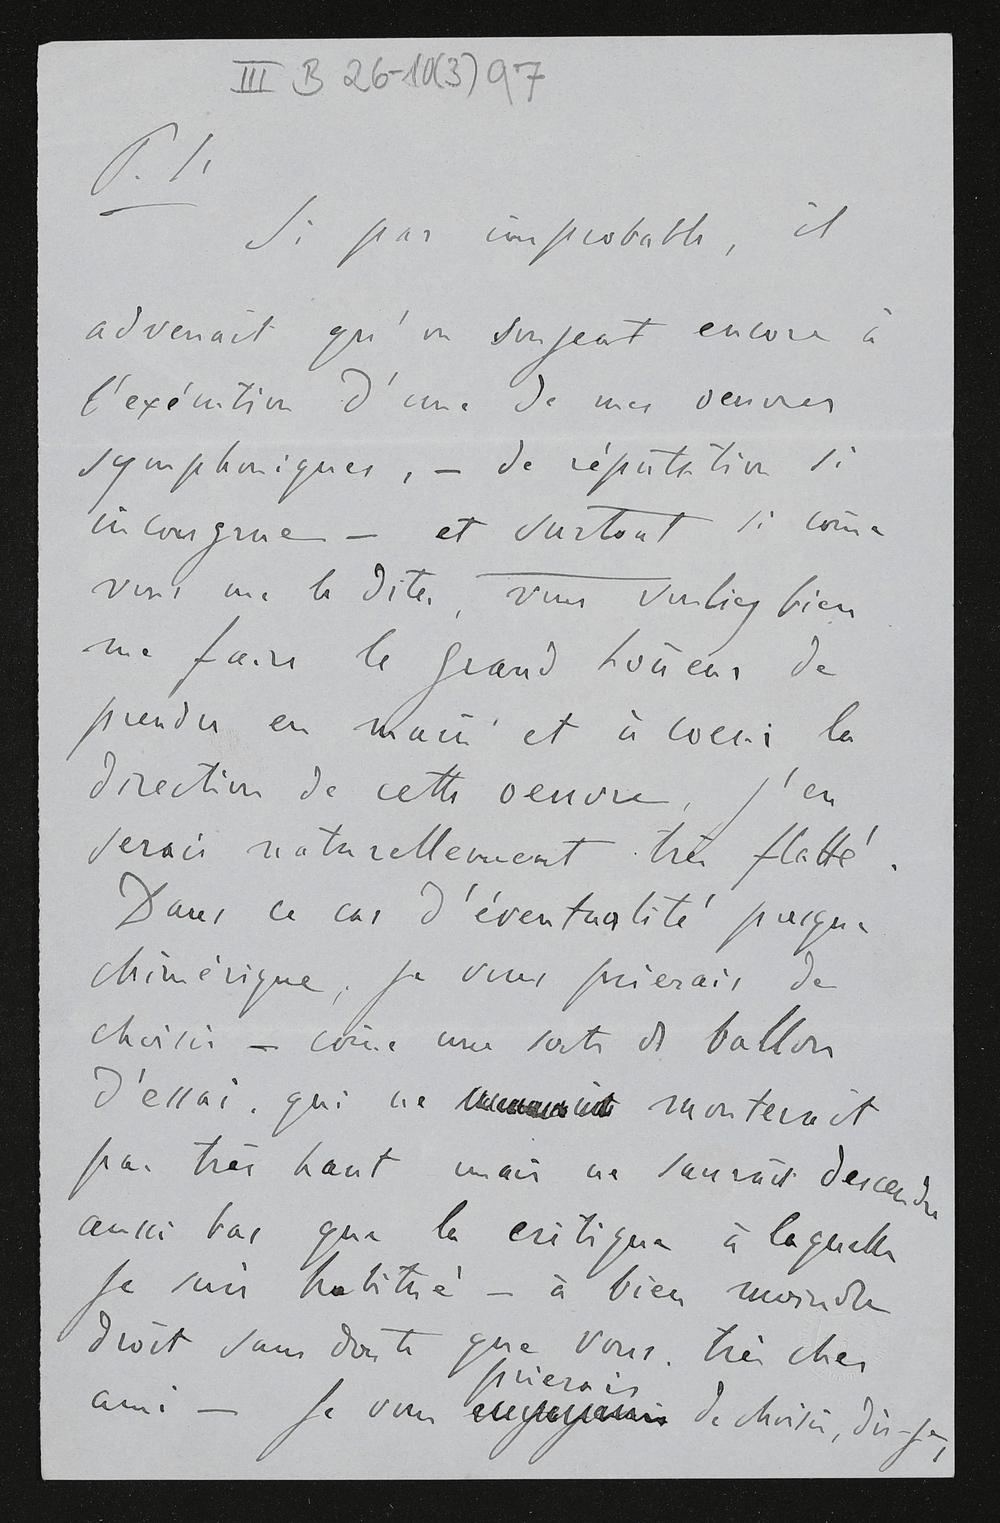 III B 26-10(3) 97
P. S.
Si par improbable, il
advenait qu'on songeat encore à
l'exécution d'une de mes oeuvres
symphoniques, — de réputation si
incongrue — et surtout si com̄e
vous me le dites, vous vouliez bien
me faire le grand hon̄eur de
prendre en main et à coeur la
direction de cette oeuvre, j'en
serais naturellement très flatté.
Dans ce cas d'éventualité presque
chimérique, je vous prierais de
choisir — com̄e une sorte de ballon
d'essai, qui ne monterait
pas très haut mais ne saurait descendre
aussi bas que la critique à laquelle
je suis habitué — à bien moindre
droit sans doute que vous, très cher
prierais
ami — je vous de choisir, dis-je,